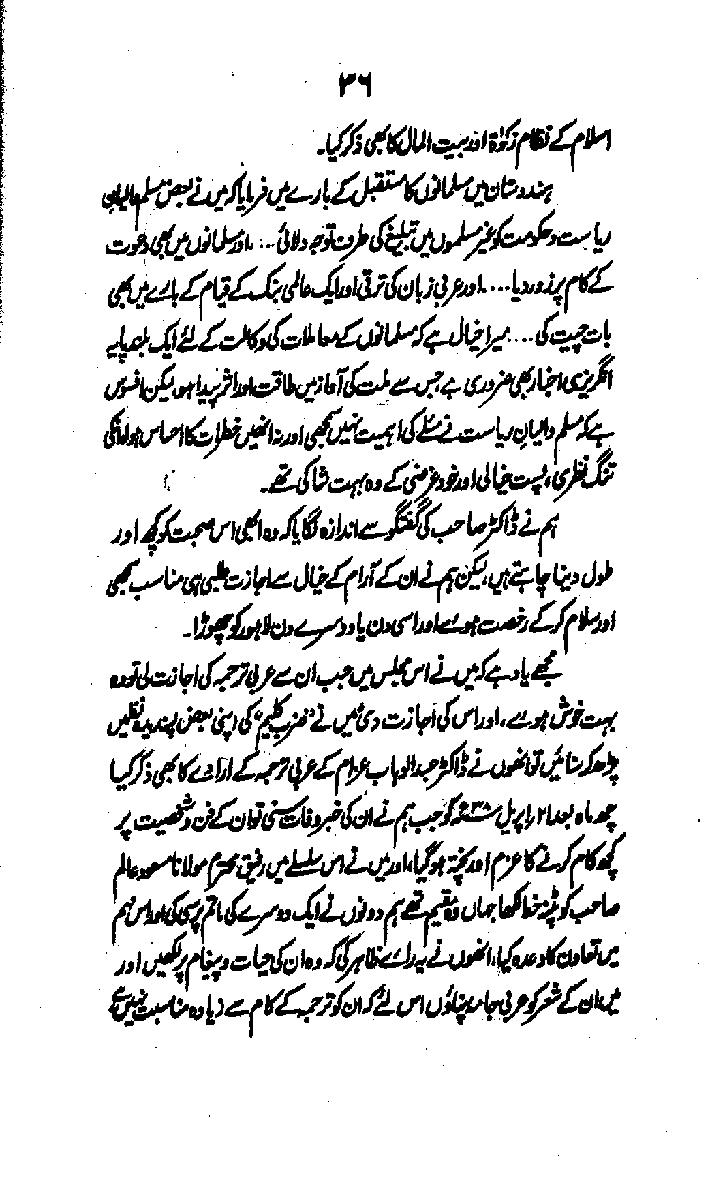 ۳۶
اسلام کے نظام زکوٰۃ اور بیت المال کا بھی ذکر کیا۔
ہندوستان میں مسلمانوں کا مستقبل کے بارے میں فرمایا کہ میں نے بعض مسلم والیان
ریاست و حکومت کو غیر مسلموں میں تبلیغ کی طرف توجہ دلائی .... اور مسلمانوں میں بھی دعوت
کے کام پر زور دیا .... اور عربی زبان کی ترقی اور ایک عالمی بنک کے قیام کے بارے میں بھی
بات چیت کی .... میرا خیال ہے کہ مسلمانوں کے معاملات کی وکالت کے لئے ایک بلند پایہ
انگریزی اخبار بھی ضروری ہے، جس سے ملت کی آواز میں طاقت اور اثر پیدا ہو، لیکن افسوس
ہے کہ مسلم والیان ریاست نے مسئلے کی اہمیت نہیں سمجھی اور نہ انھیں خطرات کا احساس ہوا، انکی
تنگ نظری، پست خیالی اور خود غرضی کے وہ بہت شاکی تھے۔
ہم نے ڈاکٹر صاحب کی گفتگو سے اندازہ لگایا کہ وہ ابھی اس صحبت کو کچھ اور
طول دینا چاہتے ہیں، لیکن ہم نے ان کے آرام کے خیال سے اجازت طلبی ہی مناسب سمجھی
اور سلام کر کے رخصت ہوئے اور اسی دن یا دوسرے دن لاہور کو چھوڑا۔
مجھے یاد ہے کہ میں نے اس مجلس میں جب ان سے عربی ترجمہ کی اجازت لی تو وہ
بہت خوش ہوئے، اور اس کی اجازت دی، میں نے "ضرب کلیم" کی اپنی بعض پسندیدہ نظمیں
پڑھ کر سنائیں تو انھوں نے ڈاکٹر عبدالوہاب عزام کے عربی ترجمہ کے ارادے کا بھی ذکر کیا
چھ ماہ بعد ۲۱ اپریل ۳۸ء کو جب ہم نے ان کی خبر وفات سنی تو ان کے فن و شخصیت پر
کچھ کام کرنے کا عزم اور پختہ ہو گیا، اور میں نے اس سلسلے میں رفیق محترم مولانا مسعود عالم
صاحب کو پٹنہ خط لکھا جہاں وہ مقیم تھے ہم دونوں نے ایک دوسرے کی ماتم پرسی کی اور اس مہم
میں تعاون کا وعدہ کیا، انھوں نے یہ رائے ظاہر کی کہ وہ ان کی حیات و پیغام پر لکھیں اور
میں ان کے شعر کو عربی جامہ پہناؤں اس لئے کہ ان کو ترجمہ کے کام سے زیادہ مناسبت نہیں ہے